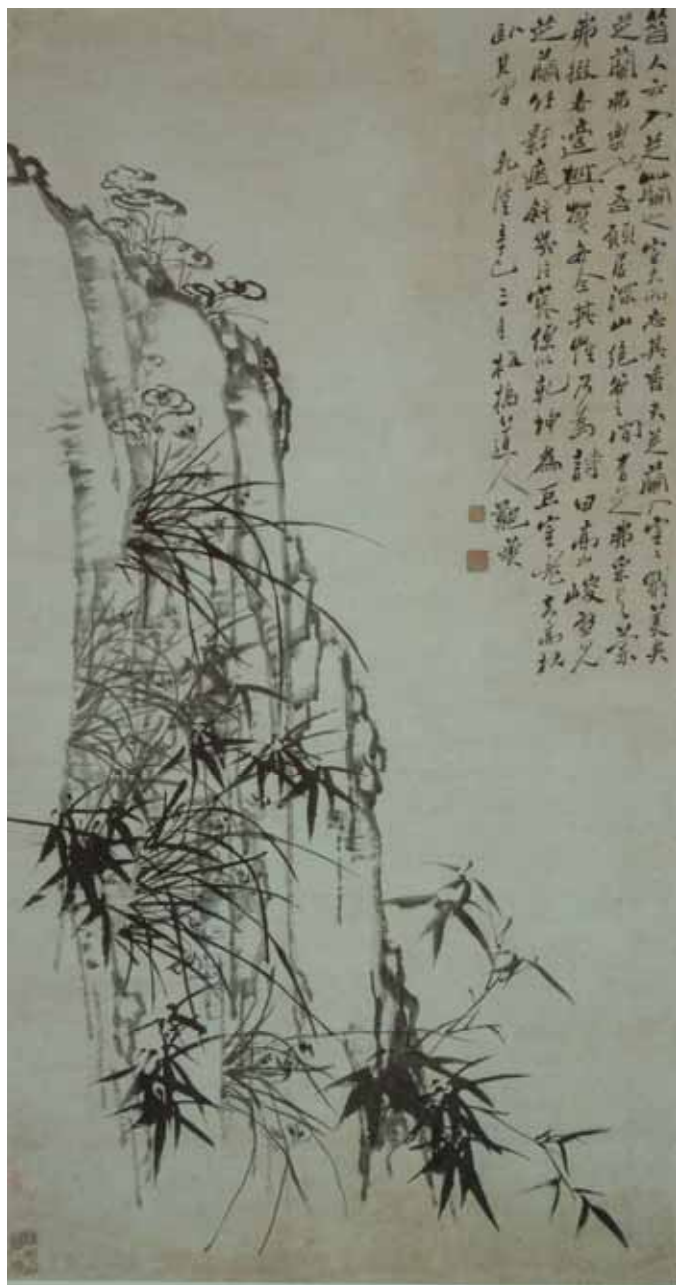 昔人云入芝蘭之室久而忘其香夫芝蘭入室室則美矣
芝蘭弗樂也吾願居深山絕谷之間有芝弗采有蘭
弗掇各適各全其性乃為詩曰高山峻壁見
芝蘭竹影遮斜幾片寒便以乾坤為巨室老夫高枕
臥其間 乾隆辛巳三月板橋道人鄭燮